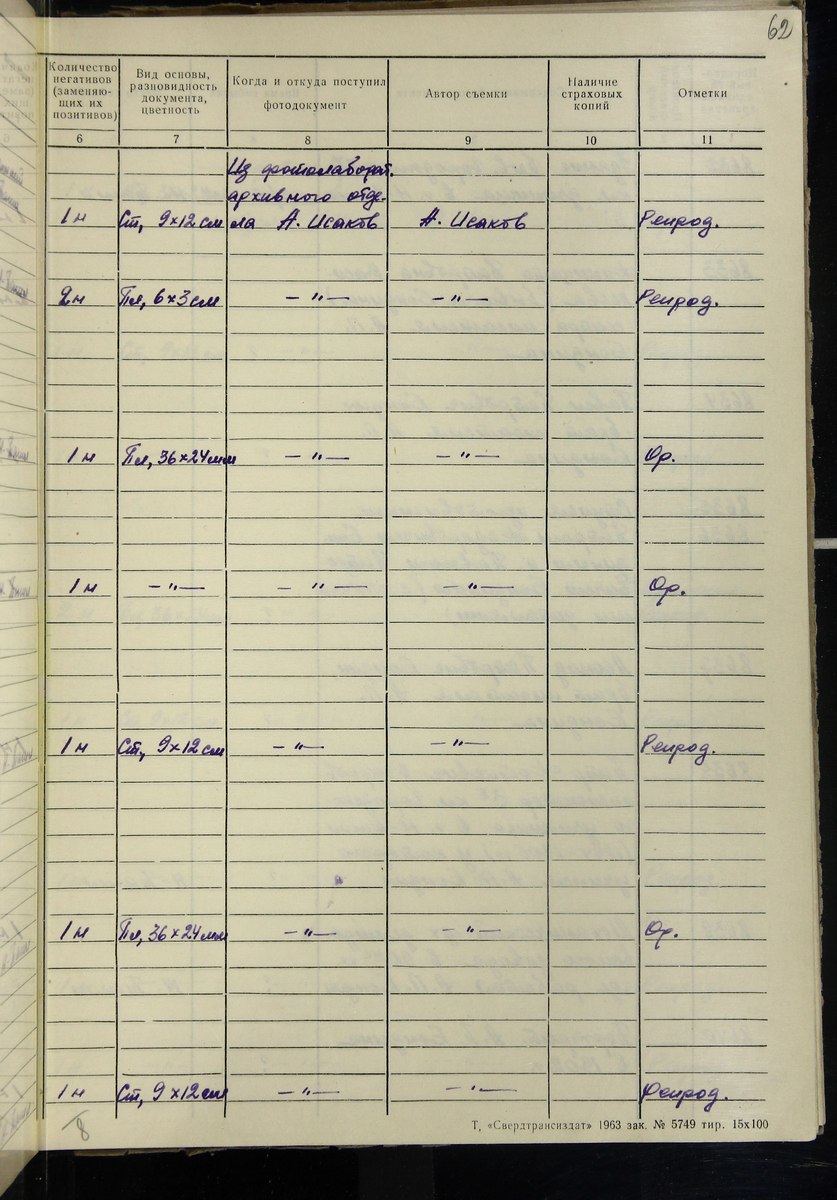 62
Количество негативов (заменяю- щих их позитивов) Вид основы, разновидность документа, цветность Когда и откуда поступил фотодокумент Автор съемки Наличие страховых копий Отметки
6 7 8 9 10 11
Из фотолаборат.
архивного отде-
1 н Ст, 9х12 см ла А. Исаков А. Исаков Репрод.
2 н Пл, 6х3 см — " — — " — Репрод.
1 н Пл, 36х24 мм — " — — " — Ор.
1 н — " — — " — — " — Ор.
1 н Ст, 9х12 см — " — — " — Репрод.
1 н Пл, 36х24 мм — " — — " — Ор.
1 н Ст, 9х12 см — " — — " — Репрод.
8
Т. «Свердтрансиздат» 1963 зак. № 5749 тир. 15х100